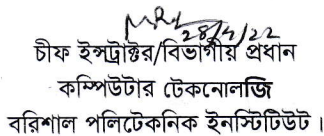 28/4/22
চীফ ইন্সট্রাক্টর/বিভাগীয় প্রধান
কম্পিউটার টেকনোলজি
বরিশাল পলিটেকনিক ইনস্টিটিউট।